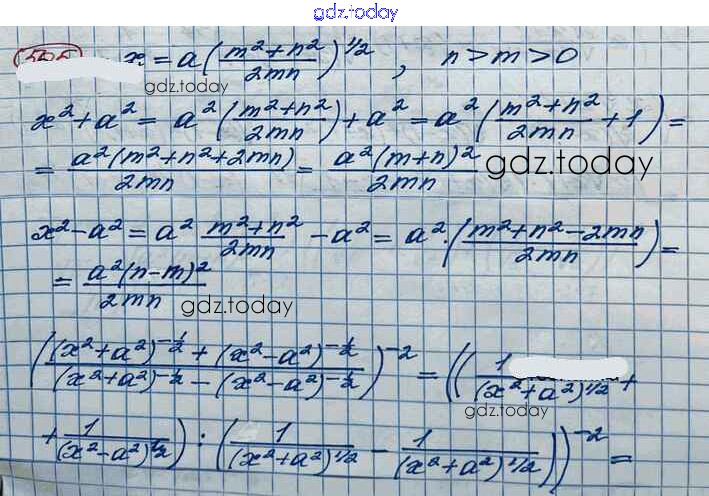 gdz.today
x = a((m²+n²)/(2mn))^1/2, n > m > 0
gdz.today
x²+a² = a²((m²+n²)/(2mn)) + a² = a²((m²+n²)/(2mn) + 1) =
= (a²(m²+n²+2mn))/(2mn) = (a²(m+n)²)/(2mn) gdz.today
x²-a² = a² (m²+n²)/(2mn) - a² = a²·((m²+n²-2mn)/(2mn)) =
= (a²(n-m)²)/(2mn) gdz.today
(((x²+a²)^-1/2 + (x²-a²)^-1/2)/((x²+a²)^-1/2 - (x²-a²)^-1/2))^-2 = ((1/(x²+a²)^1/2 +
gdz.today
+ 1/(x²-a²)^1/2) : (1/(x²+a²)^1/2 - 1/(x²+a²)^1/2))^-2 =